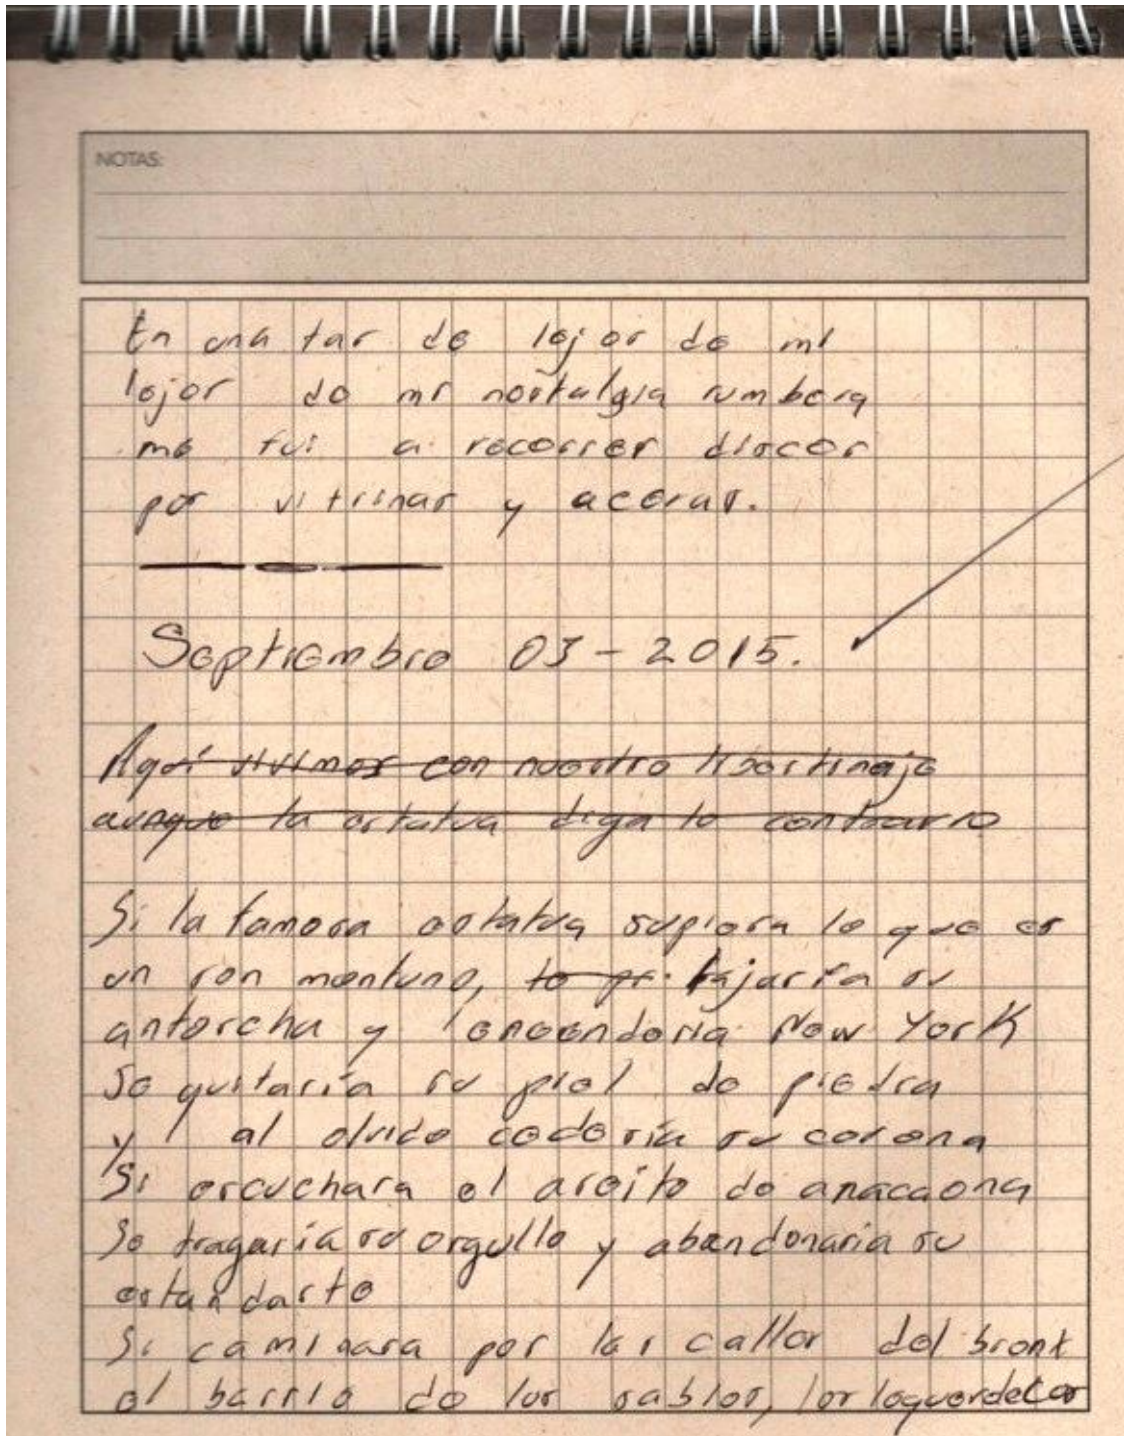 NOTAS:
En una tar de lejos de mi
lejos de mi nostalgia rumbera
me fui a recorrer discos
por vitrinas y aceras.
Septiembre 03-2015.
Aquí vivimos con nuestro libertinaje
aunque la estatua diga lo contrario
Si la famosa estatua supiera lo que es
un son montuno, bajaría su
antorcha y encendería New York
Se quitaría su piel de piedra
y al olvido cedería su corona
Si escuchara el areito de anacaona
Se tragaría su orgullo y abandonaria su
estandarte
Si caminara por las calles del bronx
el barrio de los